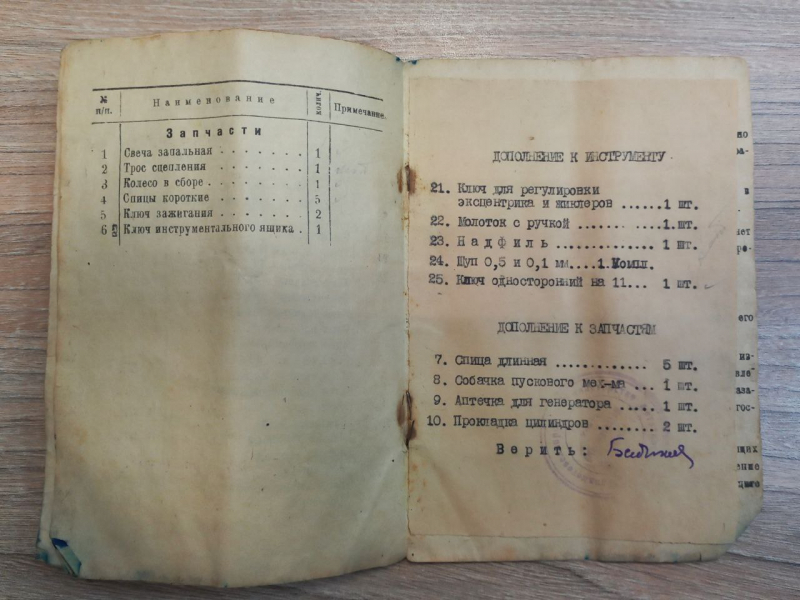 № п/п.
Наименование
Примечание.
Запчасти
1 Свеча запальная . . . . . . . 1
2 Трос сцепления . . . . . . . 1
3 Колесо в сборе . . . . . . . 1
4 Спицы короткие . . . . . . . 5
5 Ключ зажигания . . . . . . . 2
6 Ключ инструментального ящика . 1
ДОПОЛНЕНИЕ К ИНСТРУМЕНТУ
21. Ключ для регулировки
эксцентрика и жиклеров ......1 шт.
22. Молоток с ручкой ...........1 шт.
23. Надфиль ..............1 шт.
24. Щуп 0,5 и 0,1 мм....1 Компл.
25. Ключ односторонний на 11... 1 шт.
ДОПОЛНЕНИЕ К ЗАПЧАСТЯМ
7. Спица длинная .............. 5 шт.
8. Собачка пускового мех-ма ...1 шт.
9. Аптечка для генератора .....1 шт.
10. Прокладка цилиндров ........ 2 шт.
Верить:
но
в
нет
его
из-
гос-
щих